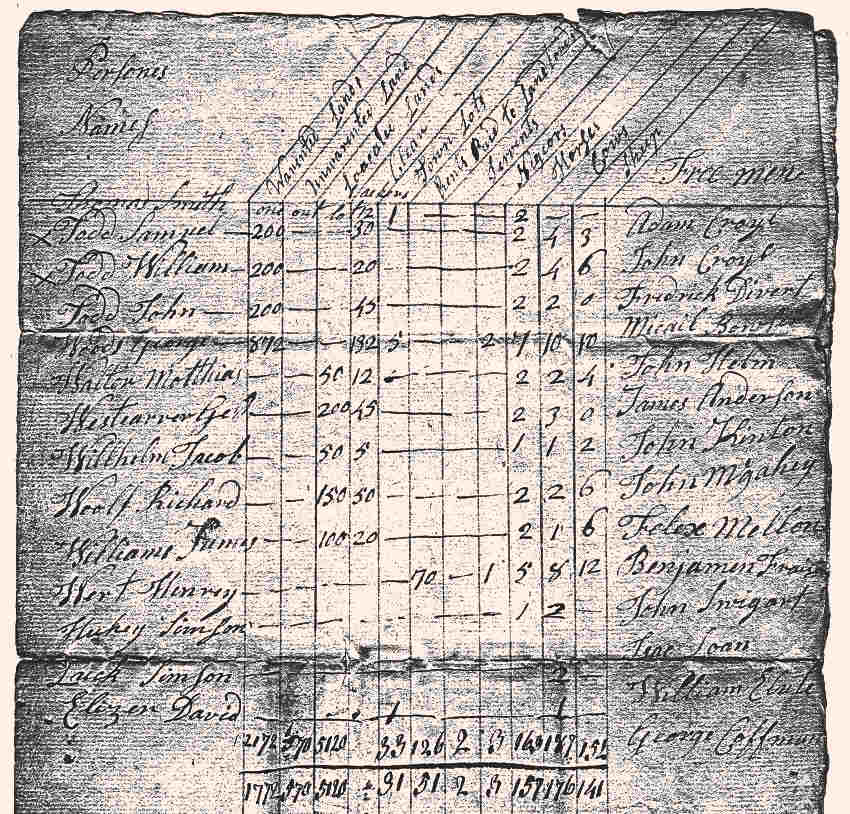 Persones
Names
Warented Lands
Unwarented Land
Located Lands
Clear
Town Lots
Rents Paid to Landlords
Servents
Horses
Cows
Sheep
Free men
Thomas Smith one out lot 1/2 1 — 2 — —
Todd Samuel — 200 — 30 — 2 4 3
Adam Croyl
Todd William — 200 — 20 — 2 4 6
John Croyl
Todd John — 200 — 45 — 2 2 0
Fredrick Divert
Woods George — 872 — 132 5 — 2 7 10 10
Micail
Waltor Matthias — 50 12 — 2 2 4
John Helm
— 200 45 — 2 3 0
James Anderson
Wilthelm Jacob — 50 5 — 1 1 2
John Hinton
Woolf Richard — 150 50 — 2 2 6
John Mgahey
Williams James — 100 20 — 2 1 6
Felix Mellon
Wert Henrey — 70 — 1 5 8 12
Benjamen
Simson — 1 2 —
John Swigart
Sloan
Simson — 2 —
William
David — 1 — 1 —
2172 570 5120 33 126 2 3 169 187 152
George Coffman
1772 570 5120 31 51 2 3 157 176 141